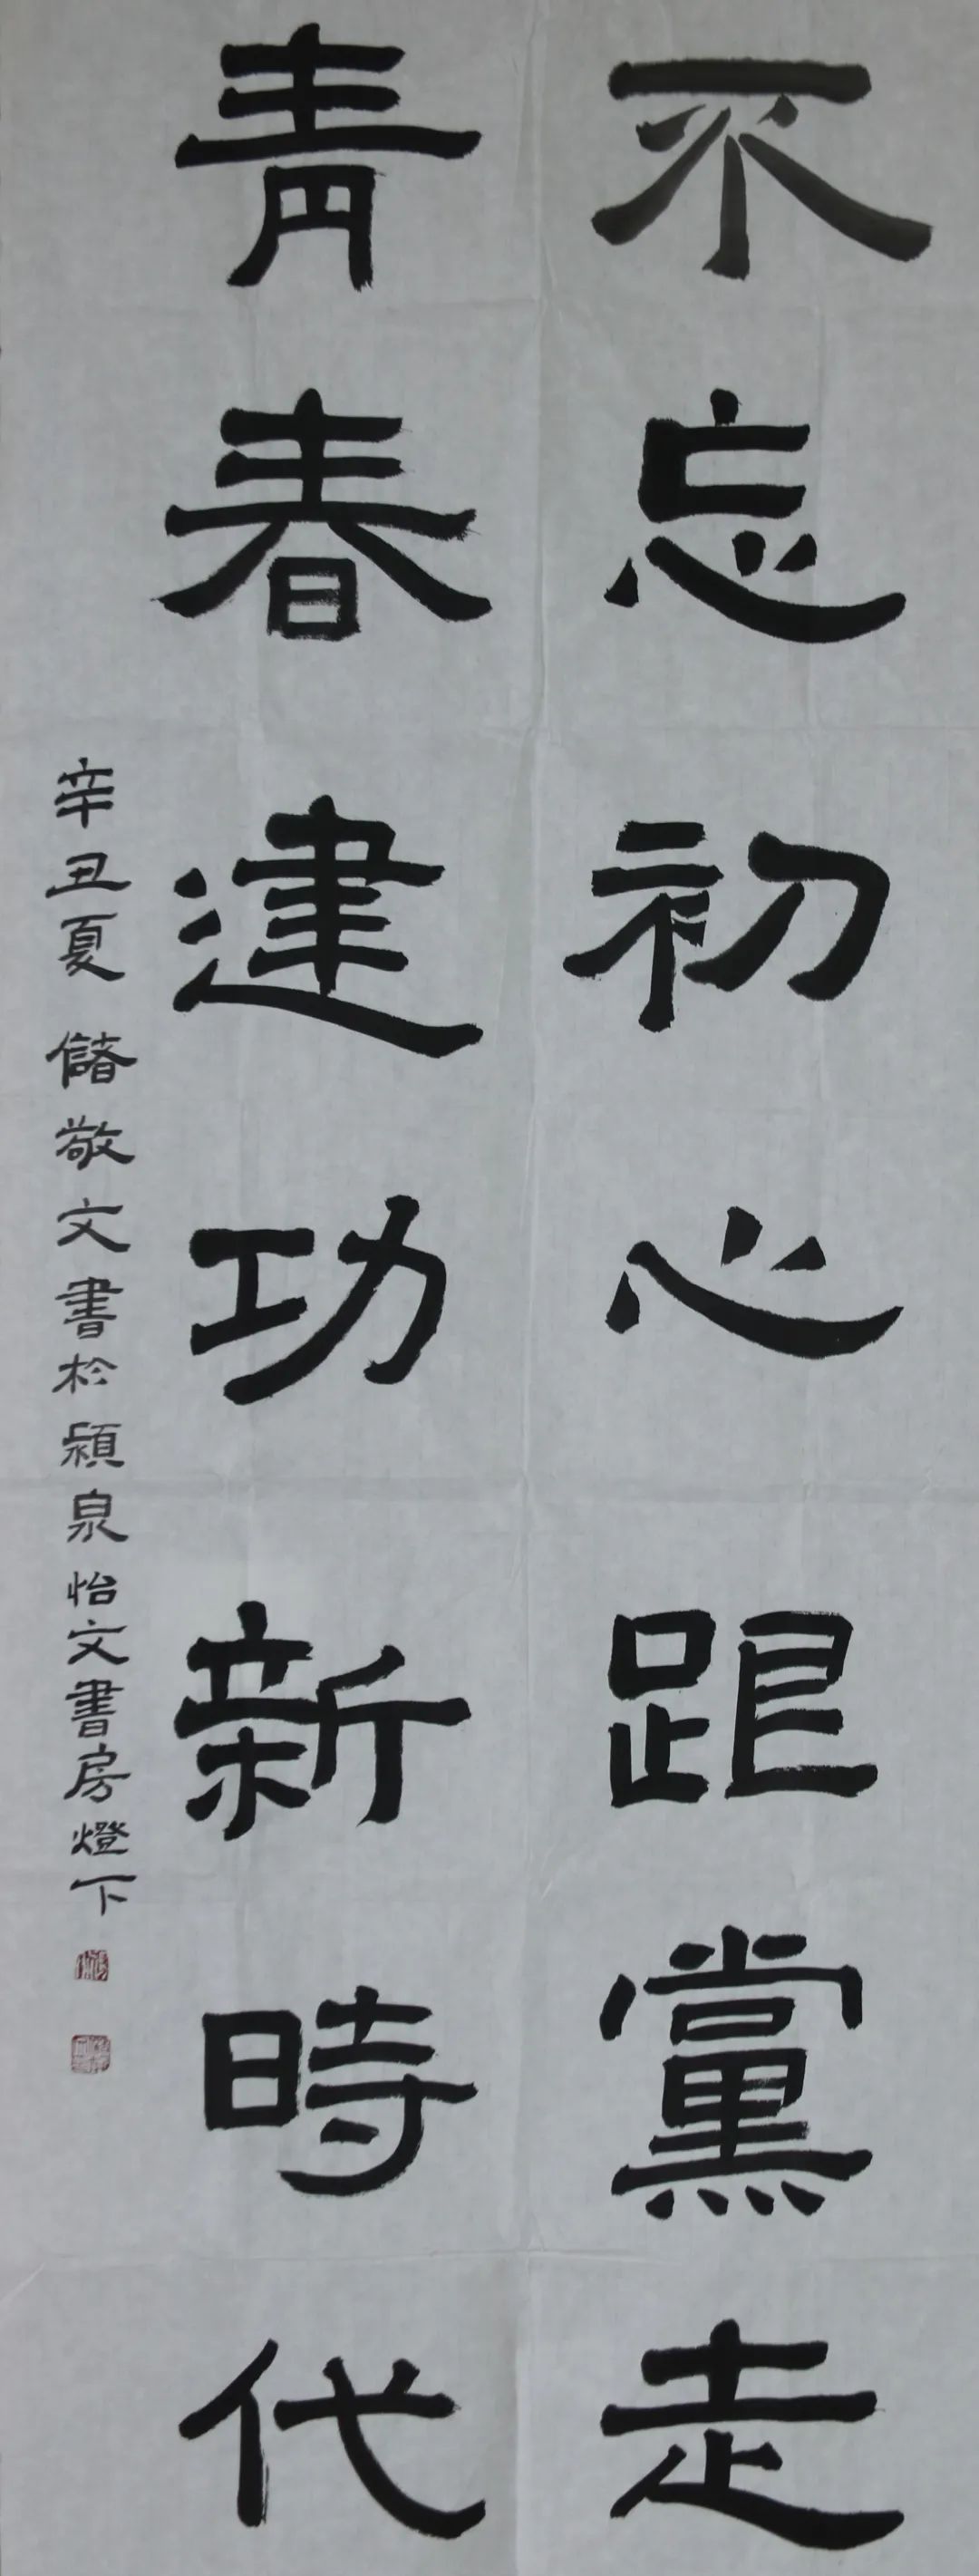 不忘初心跟黨走
青春建功新時代
辛丑夏 儲敬文書於潁泉怡文書房燈下